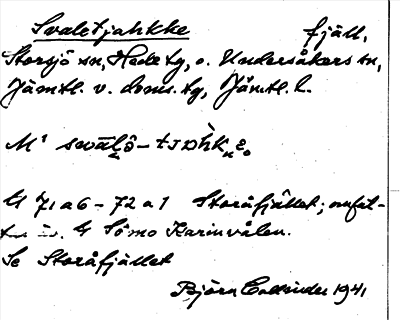 Svaletjahkke fjäll,
Storsjö sn, Hede tg, o. Undersåkers sn,
Jämtl. v. doms. tg, Jämtl. l.
M¹
G 71 a 6 – 72 a 1 Storåfjället; omfat-
G Sömo Karinvålen.
Se Storåfjället
Björn Collinder 1941